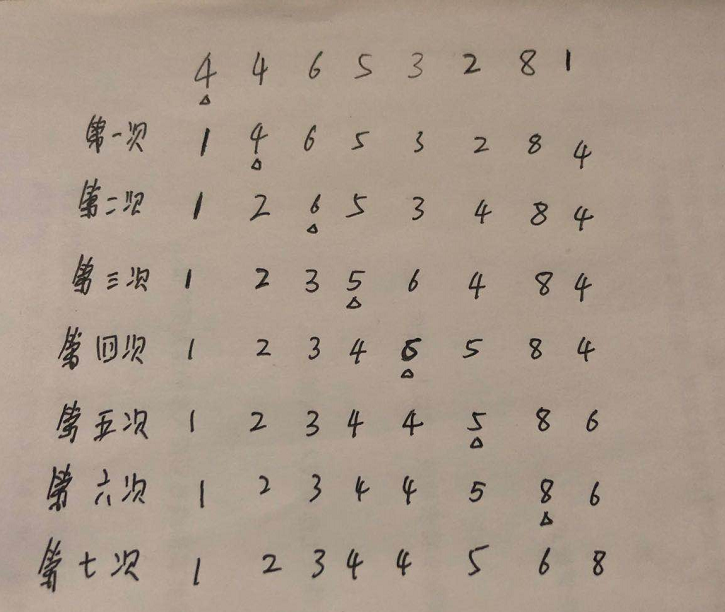 4 4 6 5 3 2 8 1
第一次 1 4 6 5 3 2 8 4
第二次 1 2 6 5 3 4 8 4
第三次 1 2 3 5 6 4 8 4
第四次 1 2 3 4 6 5 8 4
第五次 1 2 3 4 4 5 8 6
第六次 1 2 3 4 4 5 8 6
第七次 1 2 3 4 4 5 6 8